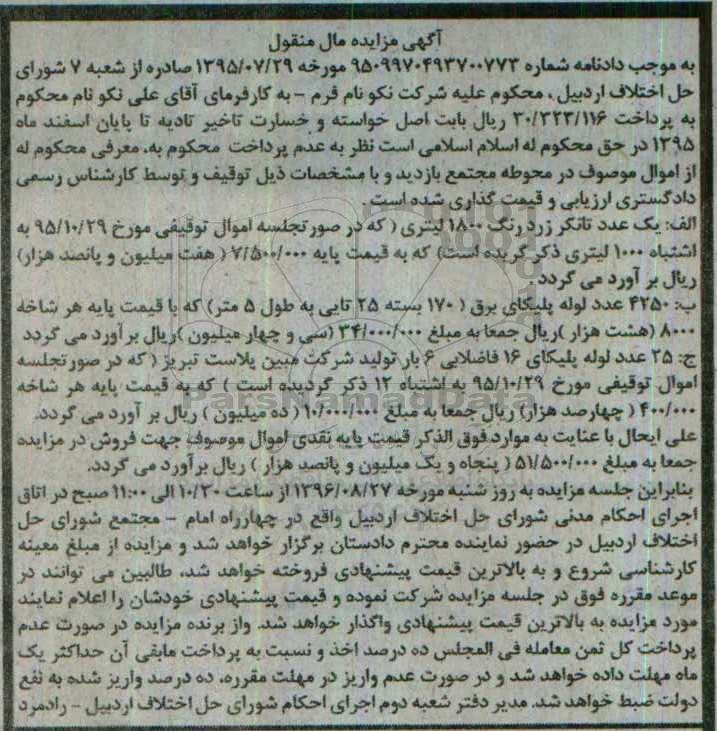 آگهی مزایده مال منقول
به موجب دادنامه شماره ۹۵۰۹۹۷۰۴۹۳۷۰۰۷۷۳ مورخه ۱۳۹۵/۰۷/۲۹ صادره از شعبه ۷ شورای
حل اختلاف اردبیل ، محکوم علیه شرکت نکو نام فرم - به کارفرمای آقای علی نکو نام محکوم
به پرداخت ۳۰/۳۲۳/۱۱۶ ریال بابت اصل خواسته و خسارت تاخیر تادیه تا پایان اسفند ماه
۱۳۹۵ در حق محکوم له اسلام اسلامی است نظر به عدم پرداخت محکوم به، معرفی محکوم له
از اموال موصوف در محوطه مجتمع بازدید و با مشخصات ذیل توقیف و توسط کارشناس رسمی
دادگستری ارزیابی و قیمت گذاری شده است .
الف: یک عدد تانکر زرد رنگ ۱۸۰۰ لیتری ( که در صورتجلسه اموال توقیفی مورخ ۹۵/۱۰/۲۹ به
اشتباه ۱۰۰۰ لیتری ذکر گریده است) که به قیمت پایه ۷/۵۰۰/۰۰۰ ( هفت میلیون و پانصد هزار)
ریال بر آورد می گردد .
ب: ۴۲۵۰ عدد لوله پلیکای برق ( ۱۷۰ بسته ۲۵ تایی به طول ۵ متر) که با قیمت پایه هر شاخه
۸۰۰۰ (هشت هزار )ریال جمعا به مبلغ ۳۴/۰۰۰/۰۰۰ (سی و چهار میلیون )ریال بر آورد می گردد
ج: ۲۵ عدد لوله پلیکای ۱۶ فاضلابی ۶ بار تولید شرکت مبین پلاست تبریز ( که در صورتجلسه
اموال توقیفی مورخ ۹۵/۱۰/۲۹ به اشتباه ۱۲ ذکر گردیده است ) که به قیمت پایه هر شاخه
۴۰۰/۰۰۰ ( چهارصد هزار) ریال جمعا به مبلغ ۱۰/۰۰۰/۰۰۰ ( ده میلیون ) ریال بر آورد می گردد.
علی ایحال با عنایت به موارد فوق الذکر قیمت پایه نقدی اموال موصوف جهت فروش در مزایده
جمعا به مبلغ ۵۱/۵۰۰/۰۰۰ ( پنجاه و یک میلیون و پانصد هزار ) ریال برآورد می گردد.
بنابراین جلسه مزایده به روز شنبه مورخه ۱۳۹۶/۰۸/۲۷ از ساعت ۱۰/۳۰ الی ۱۱:۰۰ صبح در اتاق
اجرای احکام مدنی شورای حل اختلاف اردبیل واقع در چهارراه امام - مجتمع شورای حل
اختلاف اردبیل در حضور نماینده محترم دادستان برگزار خواهد شد و مزایده از مبلغ معینه
کارشناسی شروع و به بالاترین قیمت پیشنهادی فروخته خواهد شد، طالبین می توانند در
موعد مقرره فوق در جلسه مزایده شرکت نموده و قیمت پیشنهادی خودشان را اعلام نمایند
مورد مزایده به بالاترین قیمت پیشنهادی واگذار خواهد شد. واز برنده مزایده در صورت عدم
پرداخت کل ثمن معامله فی المجلس ده درصد اخذ و نسبت به پرداخت مابقی آن حداکثر یک
ماه مهلت داده خواهد شد و در صورت عدم واریز در مهلت مقرره، ده درصد واریز شده به نفع
دولت ضبط خواهد شد. مدیر دفتر شعبه دوم اجرای احکام شورای حل اختلاف اردبیل - رادمرد
ParsNamadData